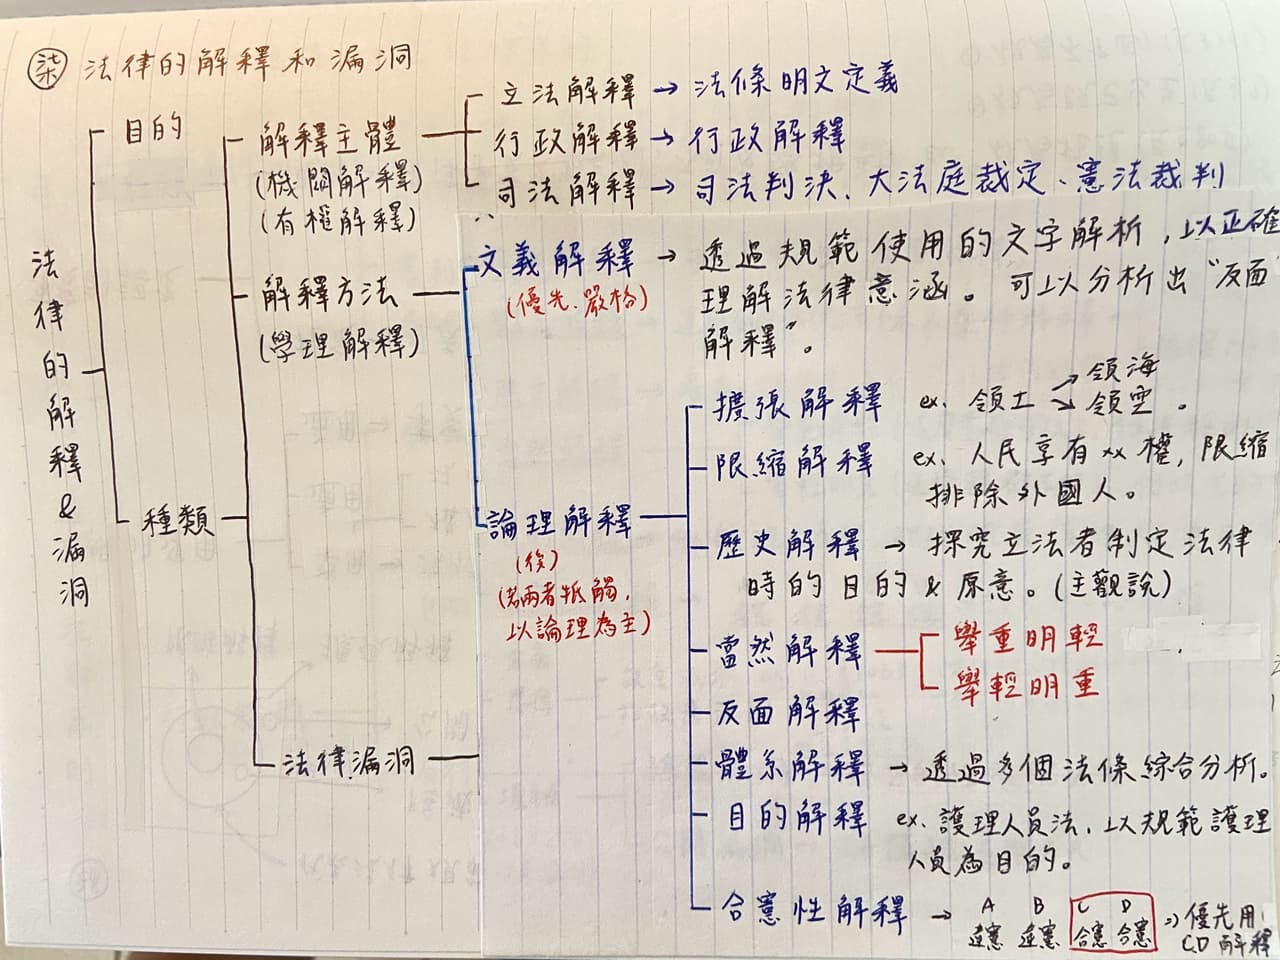 柒 法律的解釋和漏洞
法律的解釋&漏洞
目的
種類
解釋主體
(機關解釋)
(有權解釋)
立法解釋→法條明文定義
行政解釋→行政解釋
司法解釋→司法判決、大法庭裁定、憲法裁判
解釋方法
(學理解釋)
文義解釋→透過規範使用的文字解析,以正確
(優先、嚴格)
理解法律意涵。可以分析出"反面
解釋"。
論理解釋
(後)
(若兩者牴觸,
以論理為主)
擴張解釋 ex. 領土 → 領海
→ 領空。
限縮解釋 ex. 人民享有xx權,限縮
排除外國人。
歷史解釋→探究立法者制定法律
時的目的&原意。(主觀說)
當然解釋
舉重明輕
舉輕明重
反面解釋
體系解釋→透過多個法條綜合分析。
目的解釋 ex. 護理人員法,以規範護理
人員為目的。
合憲性解釋→ A B C D ⇒優先用
違憲 違憲 合憲 合憲 CD解釋
法律漏洞